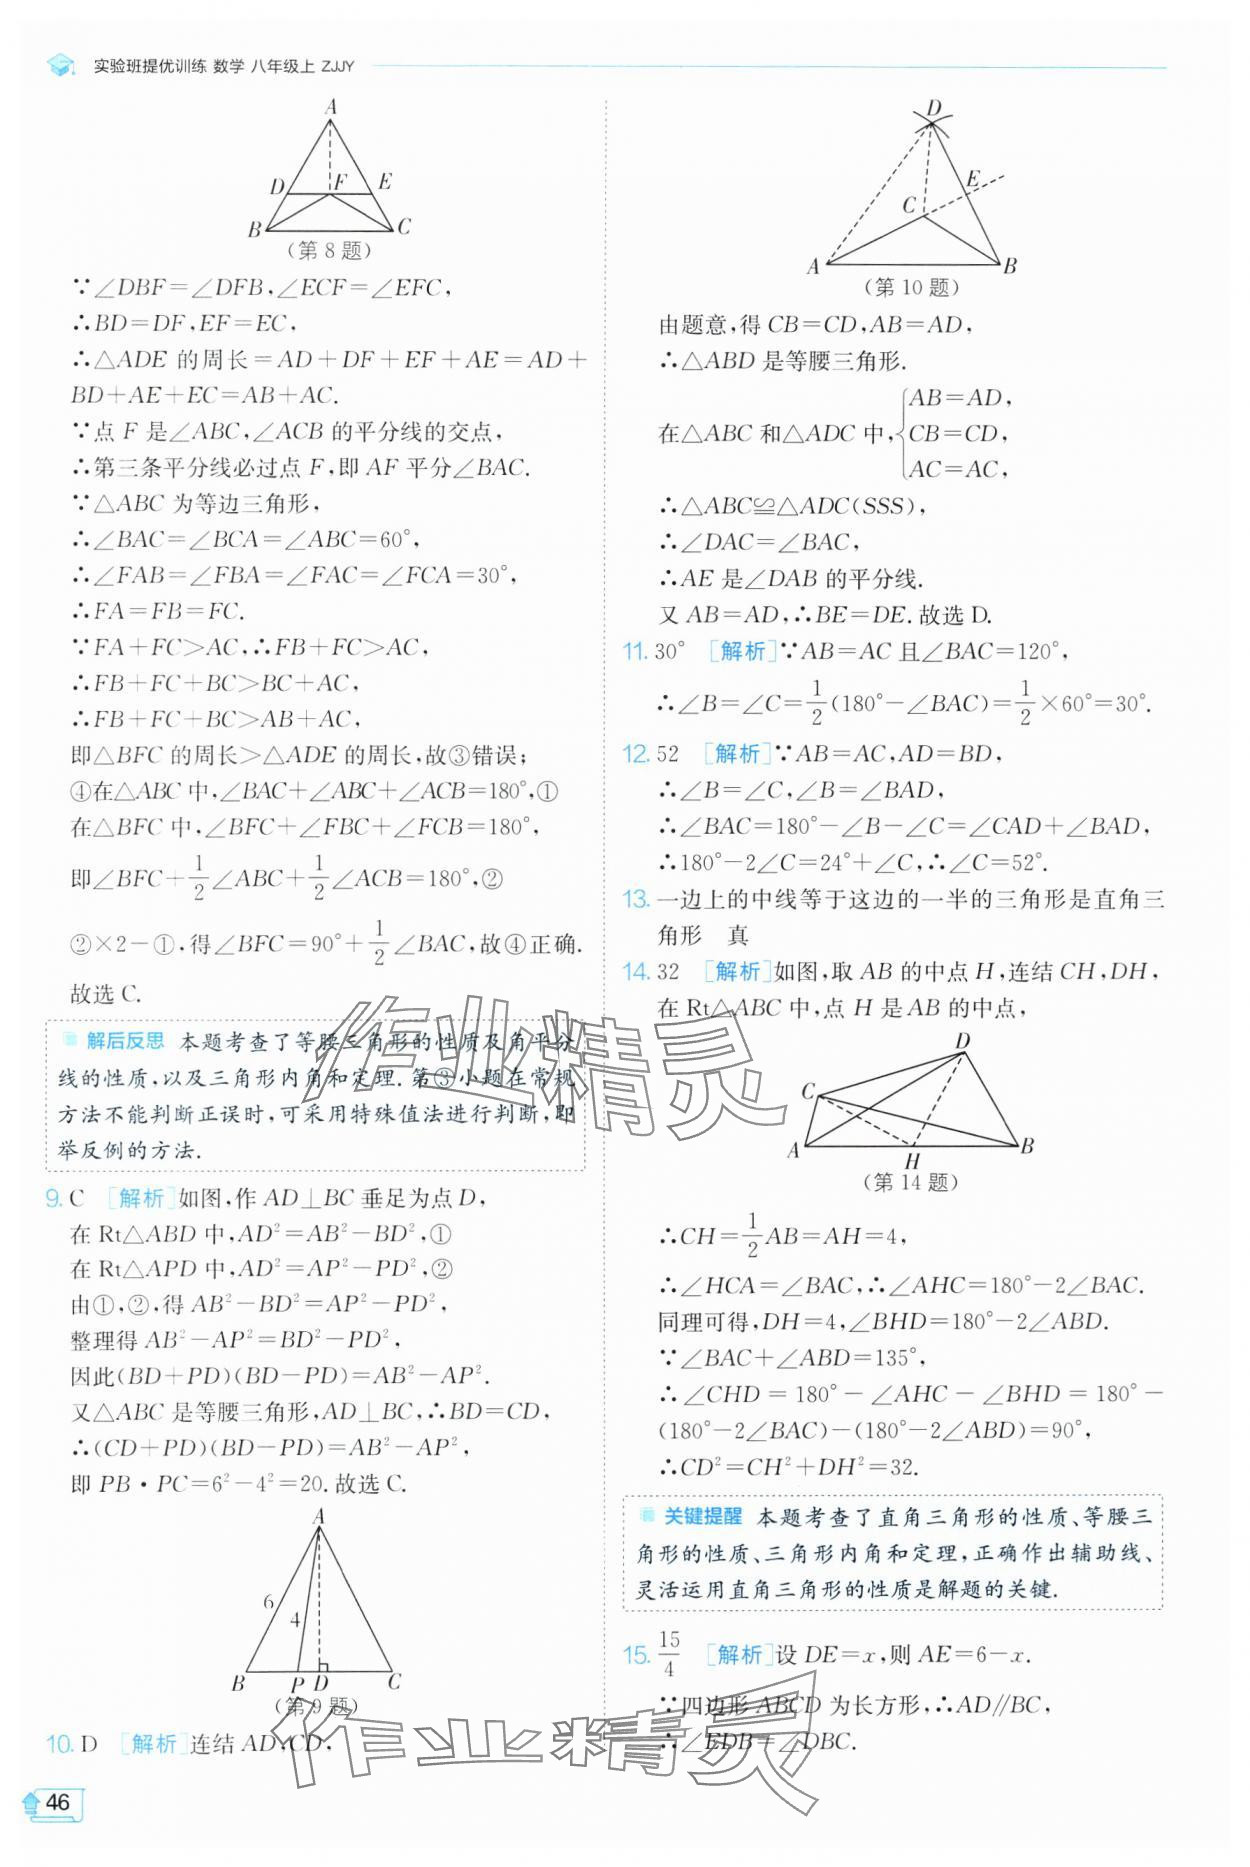 实验班提优训练 数学 八年级上 ZJJY
A
D
F
E
B
C
(第 8 题)
∵∠DBF=∠DFB,∠ECF=∠EFC,
∴BD=DF,EF=EC,
∴△ADE 的周长=AD+DF+EF+AE=AD+
BD+AE+EC=AB+AC.
∵点 F 是∠ABC,∠ACB 的平分线的交点,
∴第三条平分线必过点 F,即 AF 平分∠BAC.
∵△ABC 为等边三角形,
∴∠BAC=∠BCA=∠ABC=60°,
∴∠FAB=∠FBA=∠FAC=∠FCA=30°,
∴FA=FB=FC.
∵FA+FC>AC,∴FB+FC>AC,
∴FB+FC+BC>BC+AC,
∴FB+FC+BC>AB+AC,
即△BFC 的周长>△ADE 的周长,故③错误;
④在△ABC 中,∠BAC+∠ABC+∠ACB=180°,①
在△BFC 中,∠BFC+∠FBC+∠FCB=180°,
即∠BFC+1/2∠ABC+1/2∠ACB=180°,②
②×2-①,得∠BFC=90°+1/2∠BAC,故④正确.
故选 C.
解后反思 本题考查了等腰三角形的性质及角平分
线的性质,以及三角形内角和定理.第③小题在常规
方法不能判断正误时,可采用特殊值法进行判断,即
举反例的方法.
9. C [解析]如图,作 AD⊥BC 垂足为点 D,
在 Rt△ABD 中,AD²=AB²-BD²,①
在 Rt△APD 中,AD²=AP²-PD²,②
由①,②,得 AB²-BD²=AP²-PD²,
整理得 AB²-AP²=BD²-PD²,
因此(BD+PD)(BD-PD)=AB²-AP².
又△ABC 是等腰三角形,AD⊥BC,∴BD=CD,
∴(CD+PD)(BD-PD)=AB²-AP²,
即 PB·PC=6²-4²=20.故选 C.
A
6
4
B
P
D
C
(第 9 题)
10. D [解析]连结 AD,CD,
46
D
E
C
A
B
(第 10 题)
由题意,得 CB=CD,AB=AD,
∴△ABD 是等腰三角形.
在△ABC 和△ADC 中,{AB=AD,
CB=CD,
AC=AC,
∴△ABC≌△ADC(SSS),
∴∠DAC=∠BAC,
∴AE 是∠DAB 的平分线.
又 AB=AD,∴BE=DE.故选 D.
11. 30° [解析]∵AB=AC 且∠BAC=120°,
∴∠B=∠C=1/2(180°-∠BAC)=1/2×60°=30°.
12. 52 [解析]∵AB=AC,AD=BD,
∴∠B=∠C,∠B=∠BAD,
∴∠BAC=180°-∠B-∠C=∠CAD+∠BAD,
∴180°-2∠C=24°+∠C,∴∠C=52°.
13. 一边上的中线等于这边的一半的三角形是直角三
角形 真
14. 32 [解析]如图,取 AB 的中点 H,连结 CH,DH,
在 Rt△ABC 中,点 H 是 AB 的中点,
D
C
A
H
B
(第 14 题)
∴CH=1/2AB=AH=4,
∴∠HCA=∠BAC,∴∠AHC=180°-2∠BAC.
同理可得,DH=4,∠BHD=180°-2∠ABD.
∵∠BAC+∠ABD=135°,
∴∠CHD=180°-∠AHC-∠BHD=180°-
(180°-2∠BAC)-(180°-2∠ABD)=90°,
∴CD²=CH²+DH²=32.
关键提醒 本题考查了直角三角形的性质、等腰三
角形的性质、三角形内角和定理,正确作出辅助线、
灵活运用直角三角形的性质是解题的关键.
15. 15/4 [解析]设 DE=x,则 AE=6-x.
∵四边形 ABCD 为长方形,∴AD∥BC,
∴∠EDB=∠DBC.
作业精灵
作业精灵